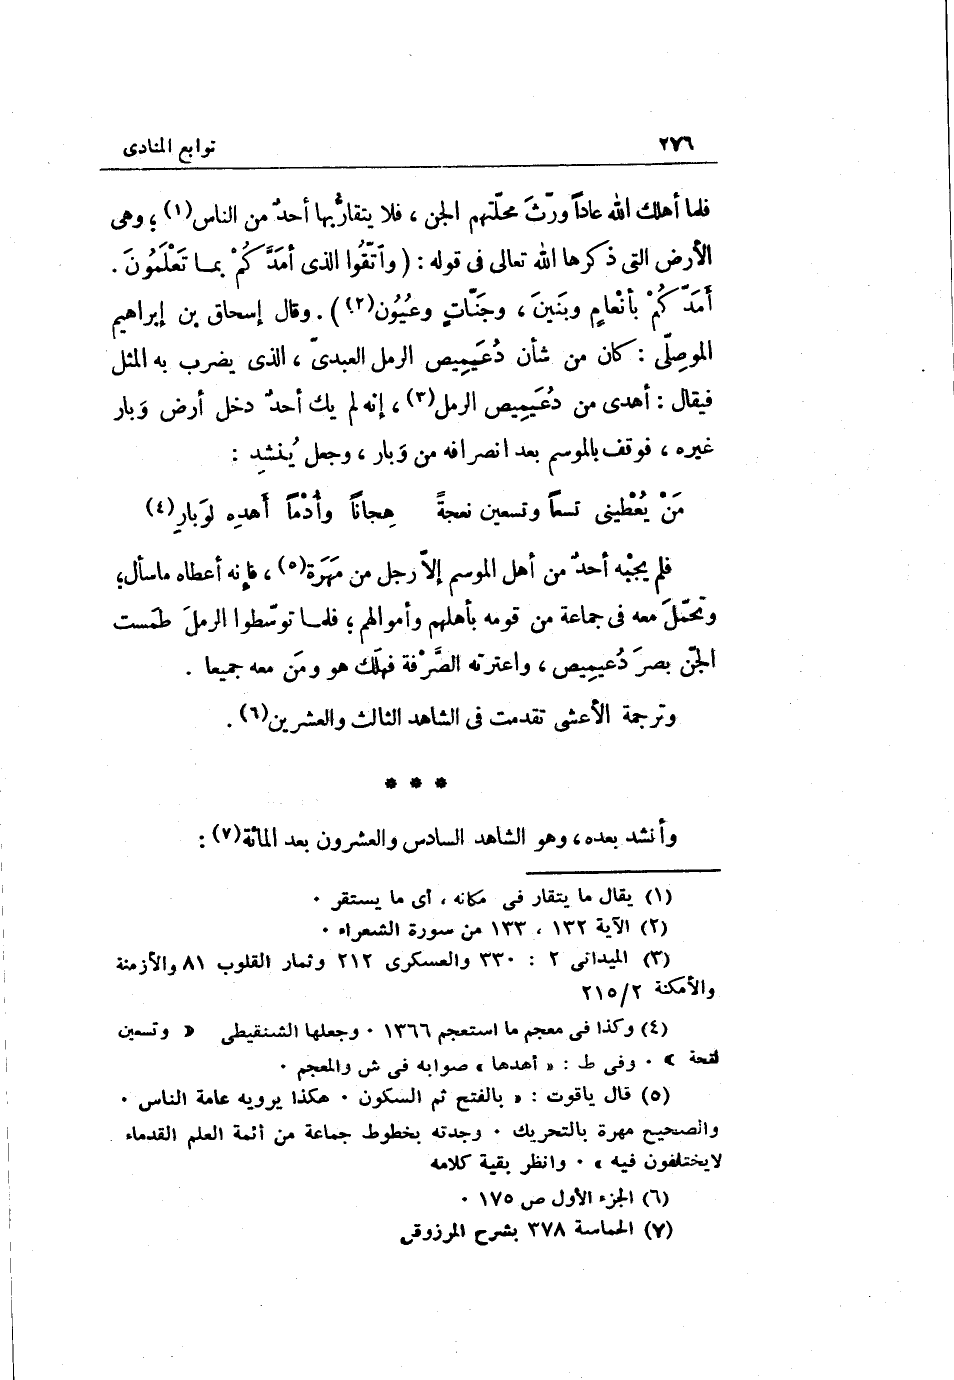 ٢٧٦ توابع المنادى
فلما أهلك الله عاداً ورّثَ محلّتهم الجن ، فلا يتقارُّ بها أحدٌ من الناس(١) ؛ وهى
الأرض التى ذكرها الله تعالى فى قوله : ( وٱتّقُوا الذى أمَدَّكُمْ بمـا تَعْلَمُونَ .
أَمَدَّكُمْ بأنْعامٍ وبَنينَ ، وجَنّاتٍ وعُيُون(٢) ) . وقال إسحاق بن إبراهيم
الموصِلّى : كان من شأن دُعَيمِيص الرمل العبدىّ ، الذى يضرب به المثل
فيقال : أهدى من دُعَيمِيص الرمل(٣) ، إنه لم يك أحدٌ دخل أرض وَبار
غيره ، فوقف بالموسم بعد انصرافه من وَبار ، وجعل يُنشد :
مَنْ يُعْطينى تسعاً وتسعين نعجةً هِجاناً وأُدْماً أَهدِه لوَبارِ(٤)
فلم يجبْه أحدٌ من أهل الموسم إلاّ رجل من مَهَرَة(٥) ، فإنه أعطاه ماسأل؛
وتحمّلَ معه فى جماعة من قومه بأهلهم وأموالهم ؛ فلمـا توسّطوا الرملَ طمَست
الجنّ بصرَ دُعيميص ، واعترته الصَّرْفة فهلَك هو ومَن معه جميعا .
وترجمة الأعشى تقدمت فى الشاهد الثالث والعشرين(٦) .
* * *
وأنشد بعده ، وهو الشاهد السادس والعشرون بعد المائة(٧) :
(١) يقال ما يتقار فى مكانه ، أى ما يستقر .
(٢) الآية ١٣٢ ، ١٣٣ من سورة الشعراء .
(٣) الميدانى ٢ : ٣٣٠ والعسكرى ٢١٢ وثمار القلوب ٨١ والأزمنة
والأمكنة ٢/٢١٥
(٤) وكذا فى معجم ما استعجم ١٣٦٦ . وجعلها الشنقيطى « وتسعين
لقحة » . وفى ط : « أهدها » صوابه فى ش والمعجم .
(٥) قال ياقوت : « بالفتح ثم السكون . هكذا يرويه عامة الناس .
والصحيح مهرة بالتحريك . وجدته بخطوط جماعة من أئمة العلم القدماء
لايختلفون فيه » . وانظر بقية كلامه
(٦) الجزء الأول ص ١٧٥ .
(٧) الحماسة ٣٧٨ بشرح المرزوقى